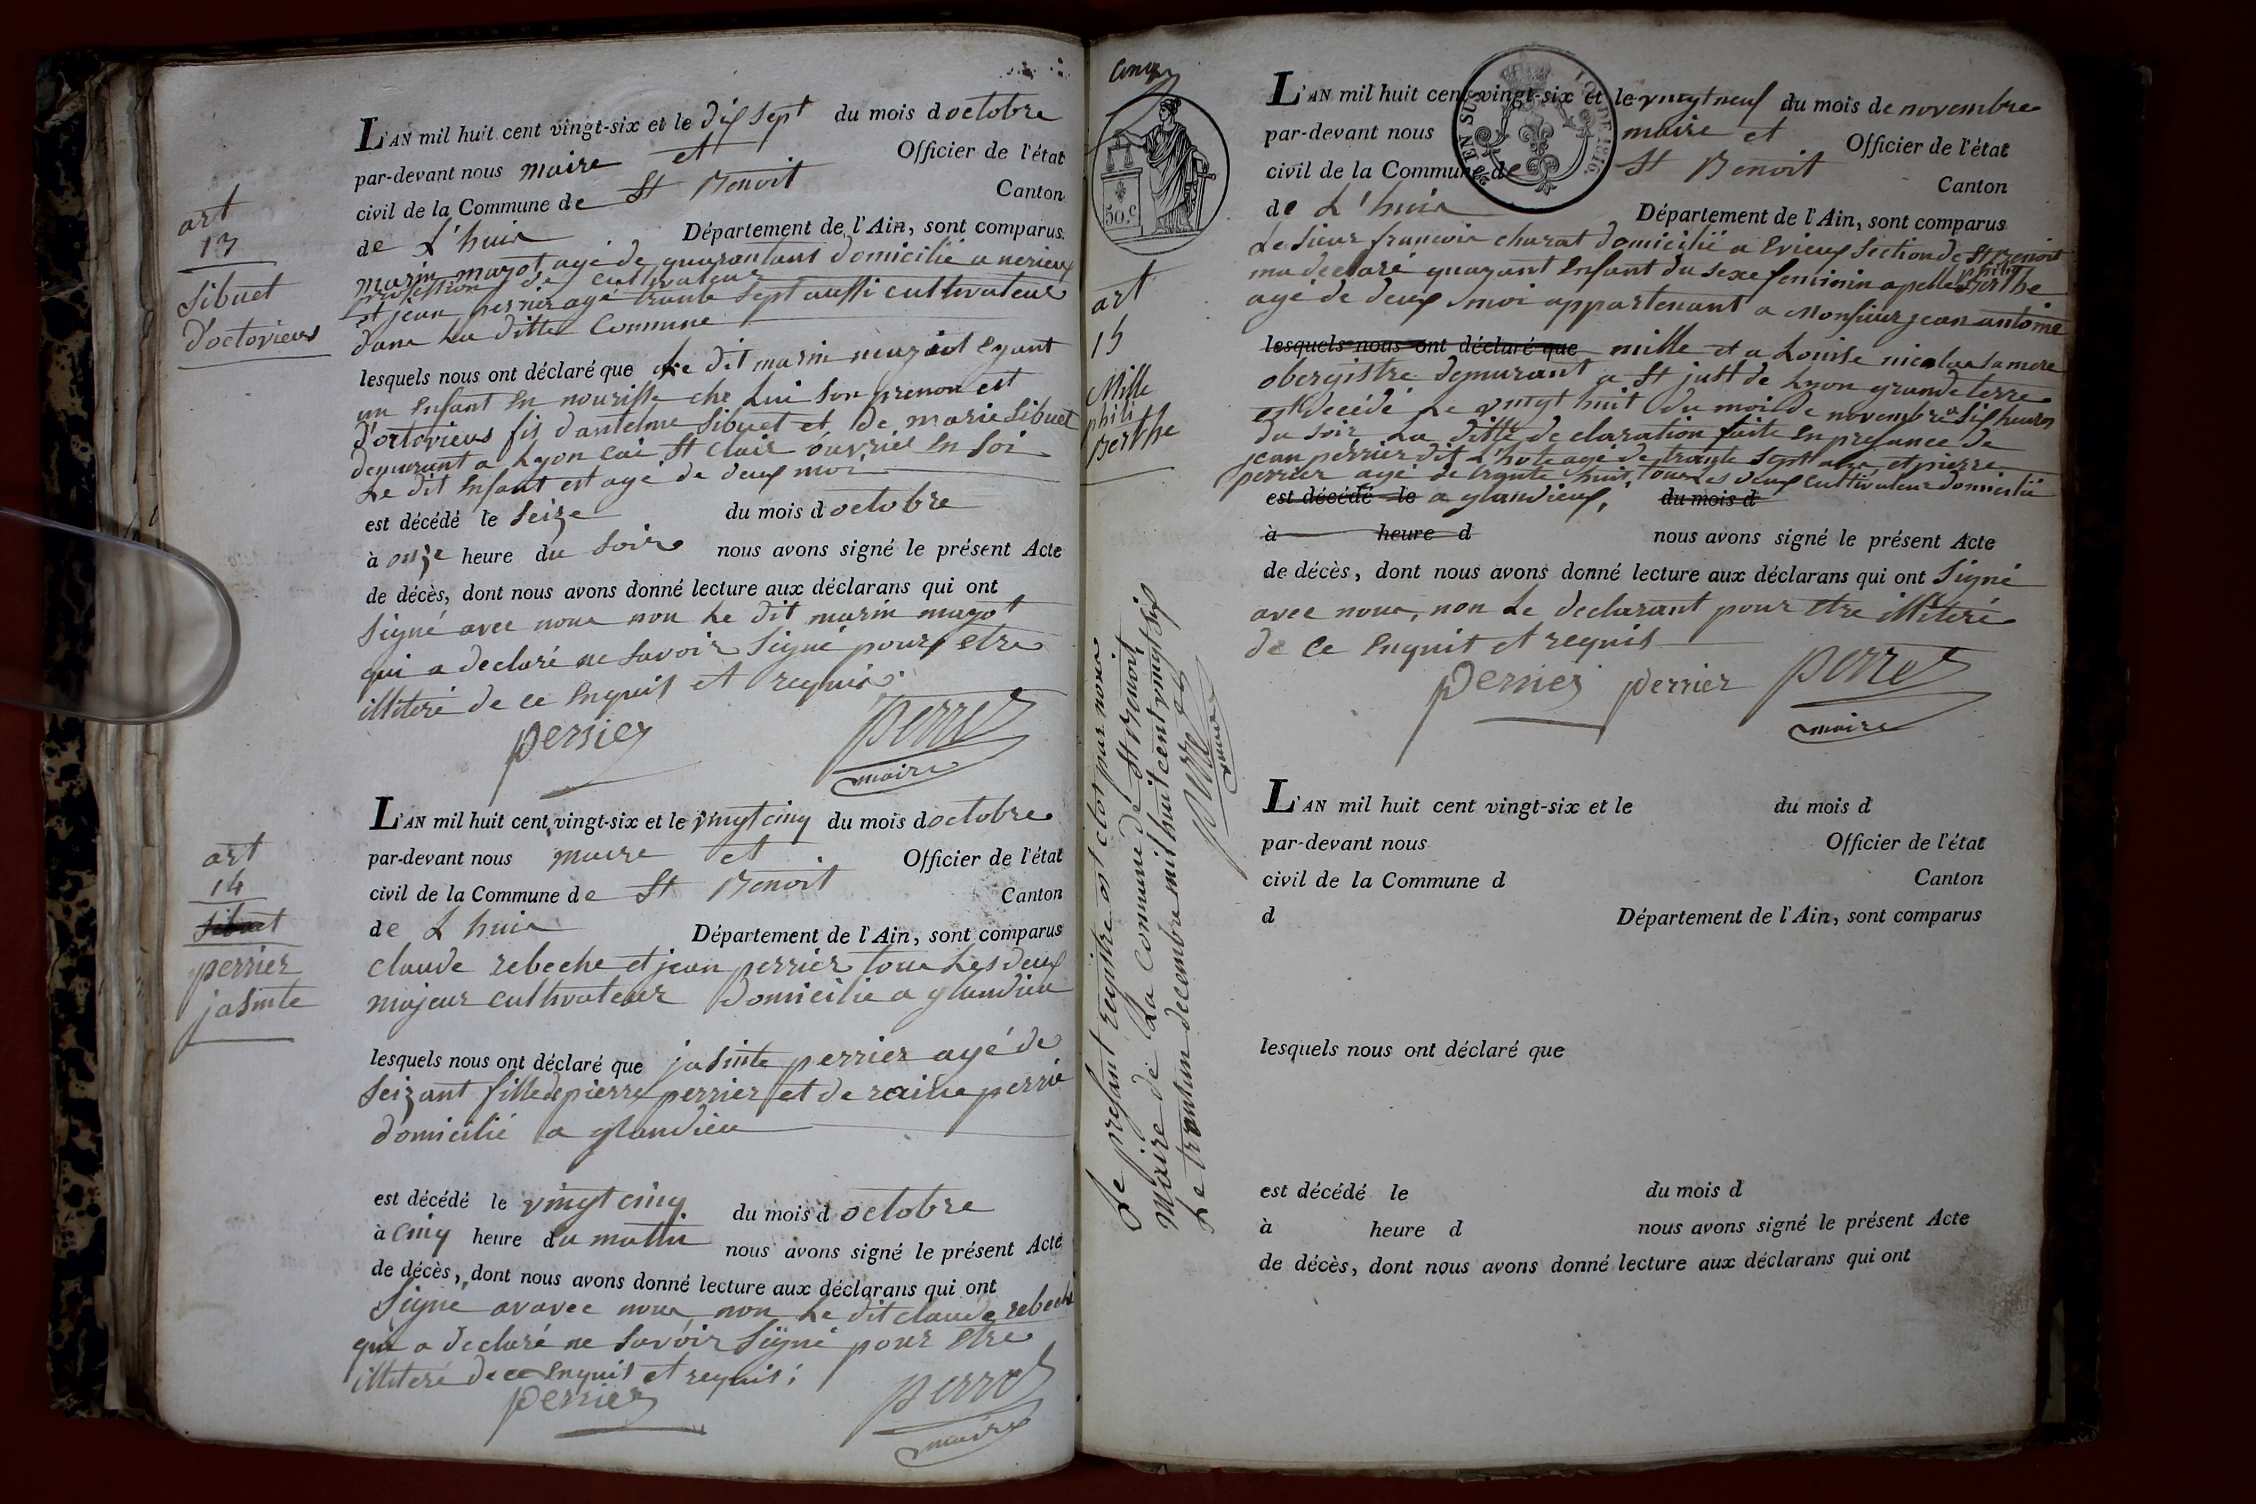 art
13
Sibuet
D'octovieus
L'AN mil huit cent vingt-six et le dix sept du mois d octobre
par-devant nous maire et Officier de l'état
civil de la Commune de St Benoit Canton
de L'huis Département de l'Ain, sont comparus
marin mazot agé de quarantans domicilié a
profession de cultivateur
et jean perrier agé trante sept aussi cultivateur
dans la ditte Commune
lesquels nous ont déclaré que le dit marin mazot eyant
un enfant en nourisse che Lui son prenon est
d'ortovieus fis d'antelme Sibuet et de marie Sibuet
demurant a Lyon cai St Clair ouvrié en Soi
Le dit enfant est agé de deux moi
est décédé le Seize du mois d octobre
à onze heure du Soir nous avons signé le présent Acte
de décès, dont nous avons donné lecture aux déclarans qui ont
Signé avec nous non Le dit marin mazot
qui a declaré ne Savoir Signé pour etre
illiteré de ce enquis et requis
perrier perret
maire
art
14
Sibuet
perrier
jasinte
L'AN mil huit cent vingt-six et le vingt cinq du mois d octobre
par-devant nous maire et Officier de l'état
civil de la Commune de St Benoit Canton
de L'huis Département de l'Ain, sont comparus
claude rebeche et jean perrier tous Les deux
majeur cultivateur Domicilié a glandieu
lesquels nous ont déclaré que jasinte perrier agé de
Seizant fille de pierre perrier et de perrié
domicilié a glandieu
est décédé le vingt cinq du mois d octobre
à cinq heure du mattin nous avons signé le présent Acte
de décès, dont nous avons donné lecture aux déclarans qui ont
Signé avavec nous non Le dit claude rebeche
qui a declaré ne Savoir Signé pour etre
illiteré de ce enquis et requis
perrier perret
maire
50 C.
EN SUS
LOI DE 1816
art
15
Mille
phili
Berthe
L'AN mil huit cent vingt-six et le vingt neuf du mois de novembre
par-devant nous maire et Officier de l'état
civil de la Commune de St Benoit Canton
de L'huis Département de l'Ain, sont comparus
Le Sieur francois charat domicilié a Evieux Section de St Benoit
ma declaré quayant enfant du sexe feminin apelle phili Berthe
agé de deux moi appartenant a Monsieur jean antoine
lesquels nous ont déclaré que mille et a Louise nicolas sa mere
obergistre demurant a St just de Lyon grande terre
est decédé Le vingt huit du moi de novembre a Six heures
du Soir La ditte declaration faite en presance de
jean perrier dit L'hote agé de trante Sept ans et pierre
perrier agé de trante huit, tous Les deux cultivateur domicilié
est décédé le a glandieux, du mois d
à heure d nous avons signé le présent Acte
de décès, dont nous avons donné lecture aux déclarans qui ont Signé
avec nous, non Le declarant pour etre illiteré
de ce enquit et requis
perrier perrier perret
maire
Le présant registre est clot par nous
Maire de La commune de St Benoit
Le trantun decembre mil huit cent vingt Six
perret
maire
L'AN mil huit cent vingt-six et le du mois d
par-devant nous Officier de l'état
civil de la Commune d Canton
d Département de l'Ain, sont comparus
lesquels nous ont déclaré que
est décédé le du mois d
à heure d nous avons signé le présent Acte
de décès, dont nous avons donné lecture aux déclarans qui ont